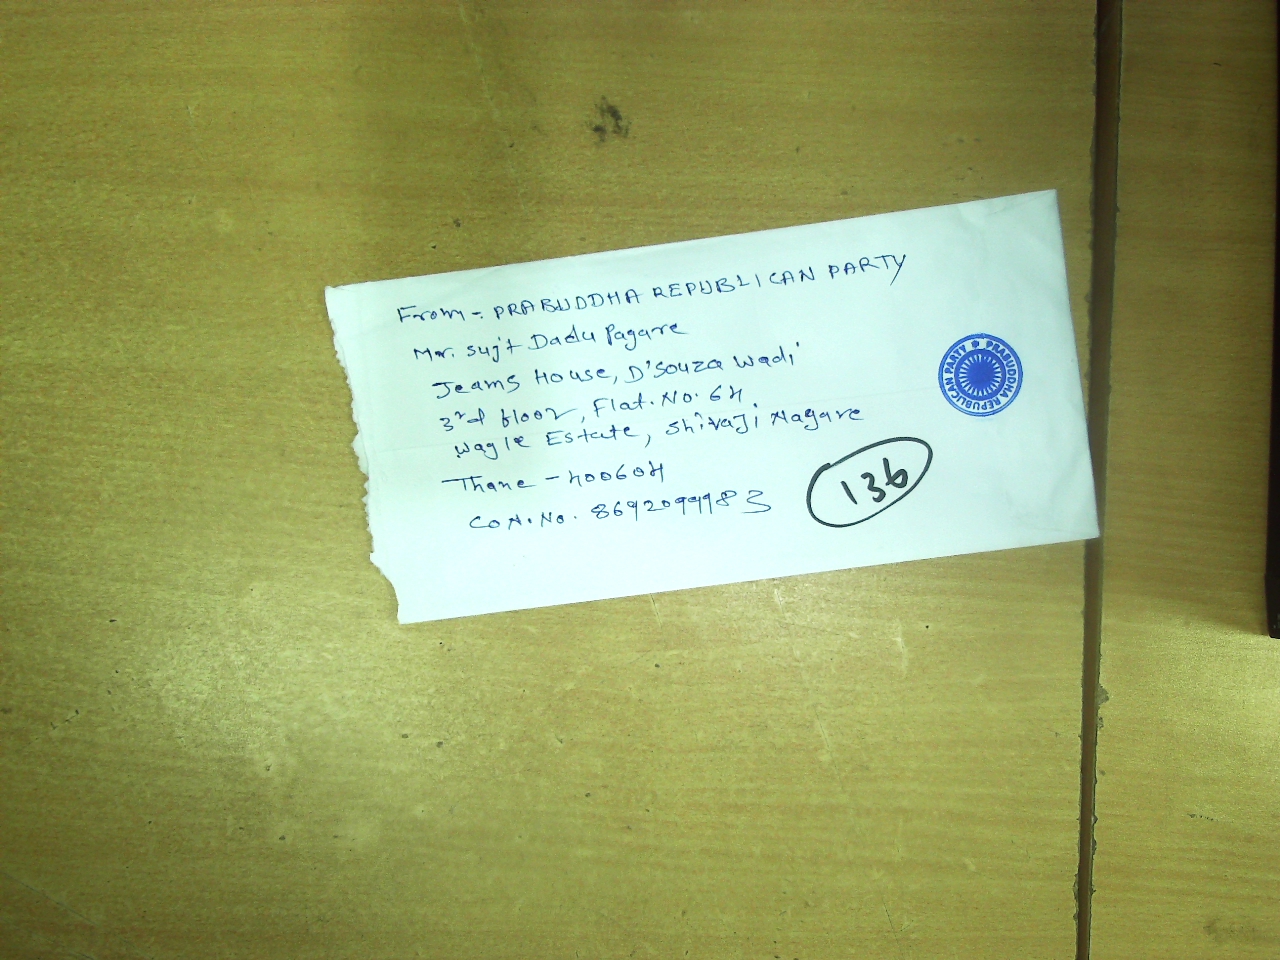 From - PRABUDDHA REPUBLICAN PARTY
Mr. Sujit Dadu Pagare
Jeams House, D'souza wadi
3rd floor, Flat. No. 64
Wagle Estate, Shivaji Nagare
Thane - 400604
Con. No. 8692099983
136
PRABUDDHA REPUBLICAN PARTY